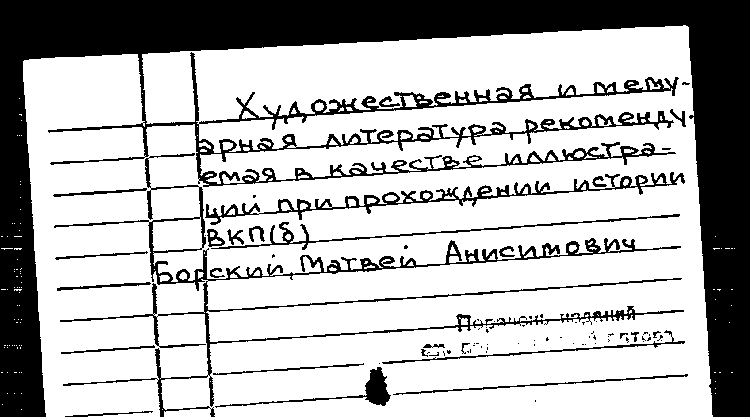 Художественная и мему-
арная литература, рекоменду-
емая в качестве иллюстра-
ций при прохождении истории
ВКП(б)
Борский, Матвей Анисимович
Перечень изданий
автора